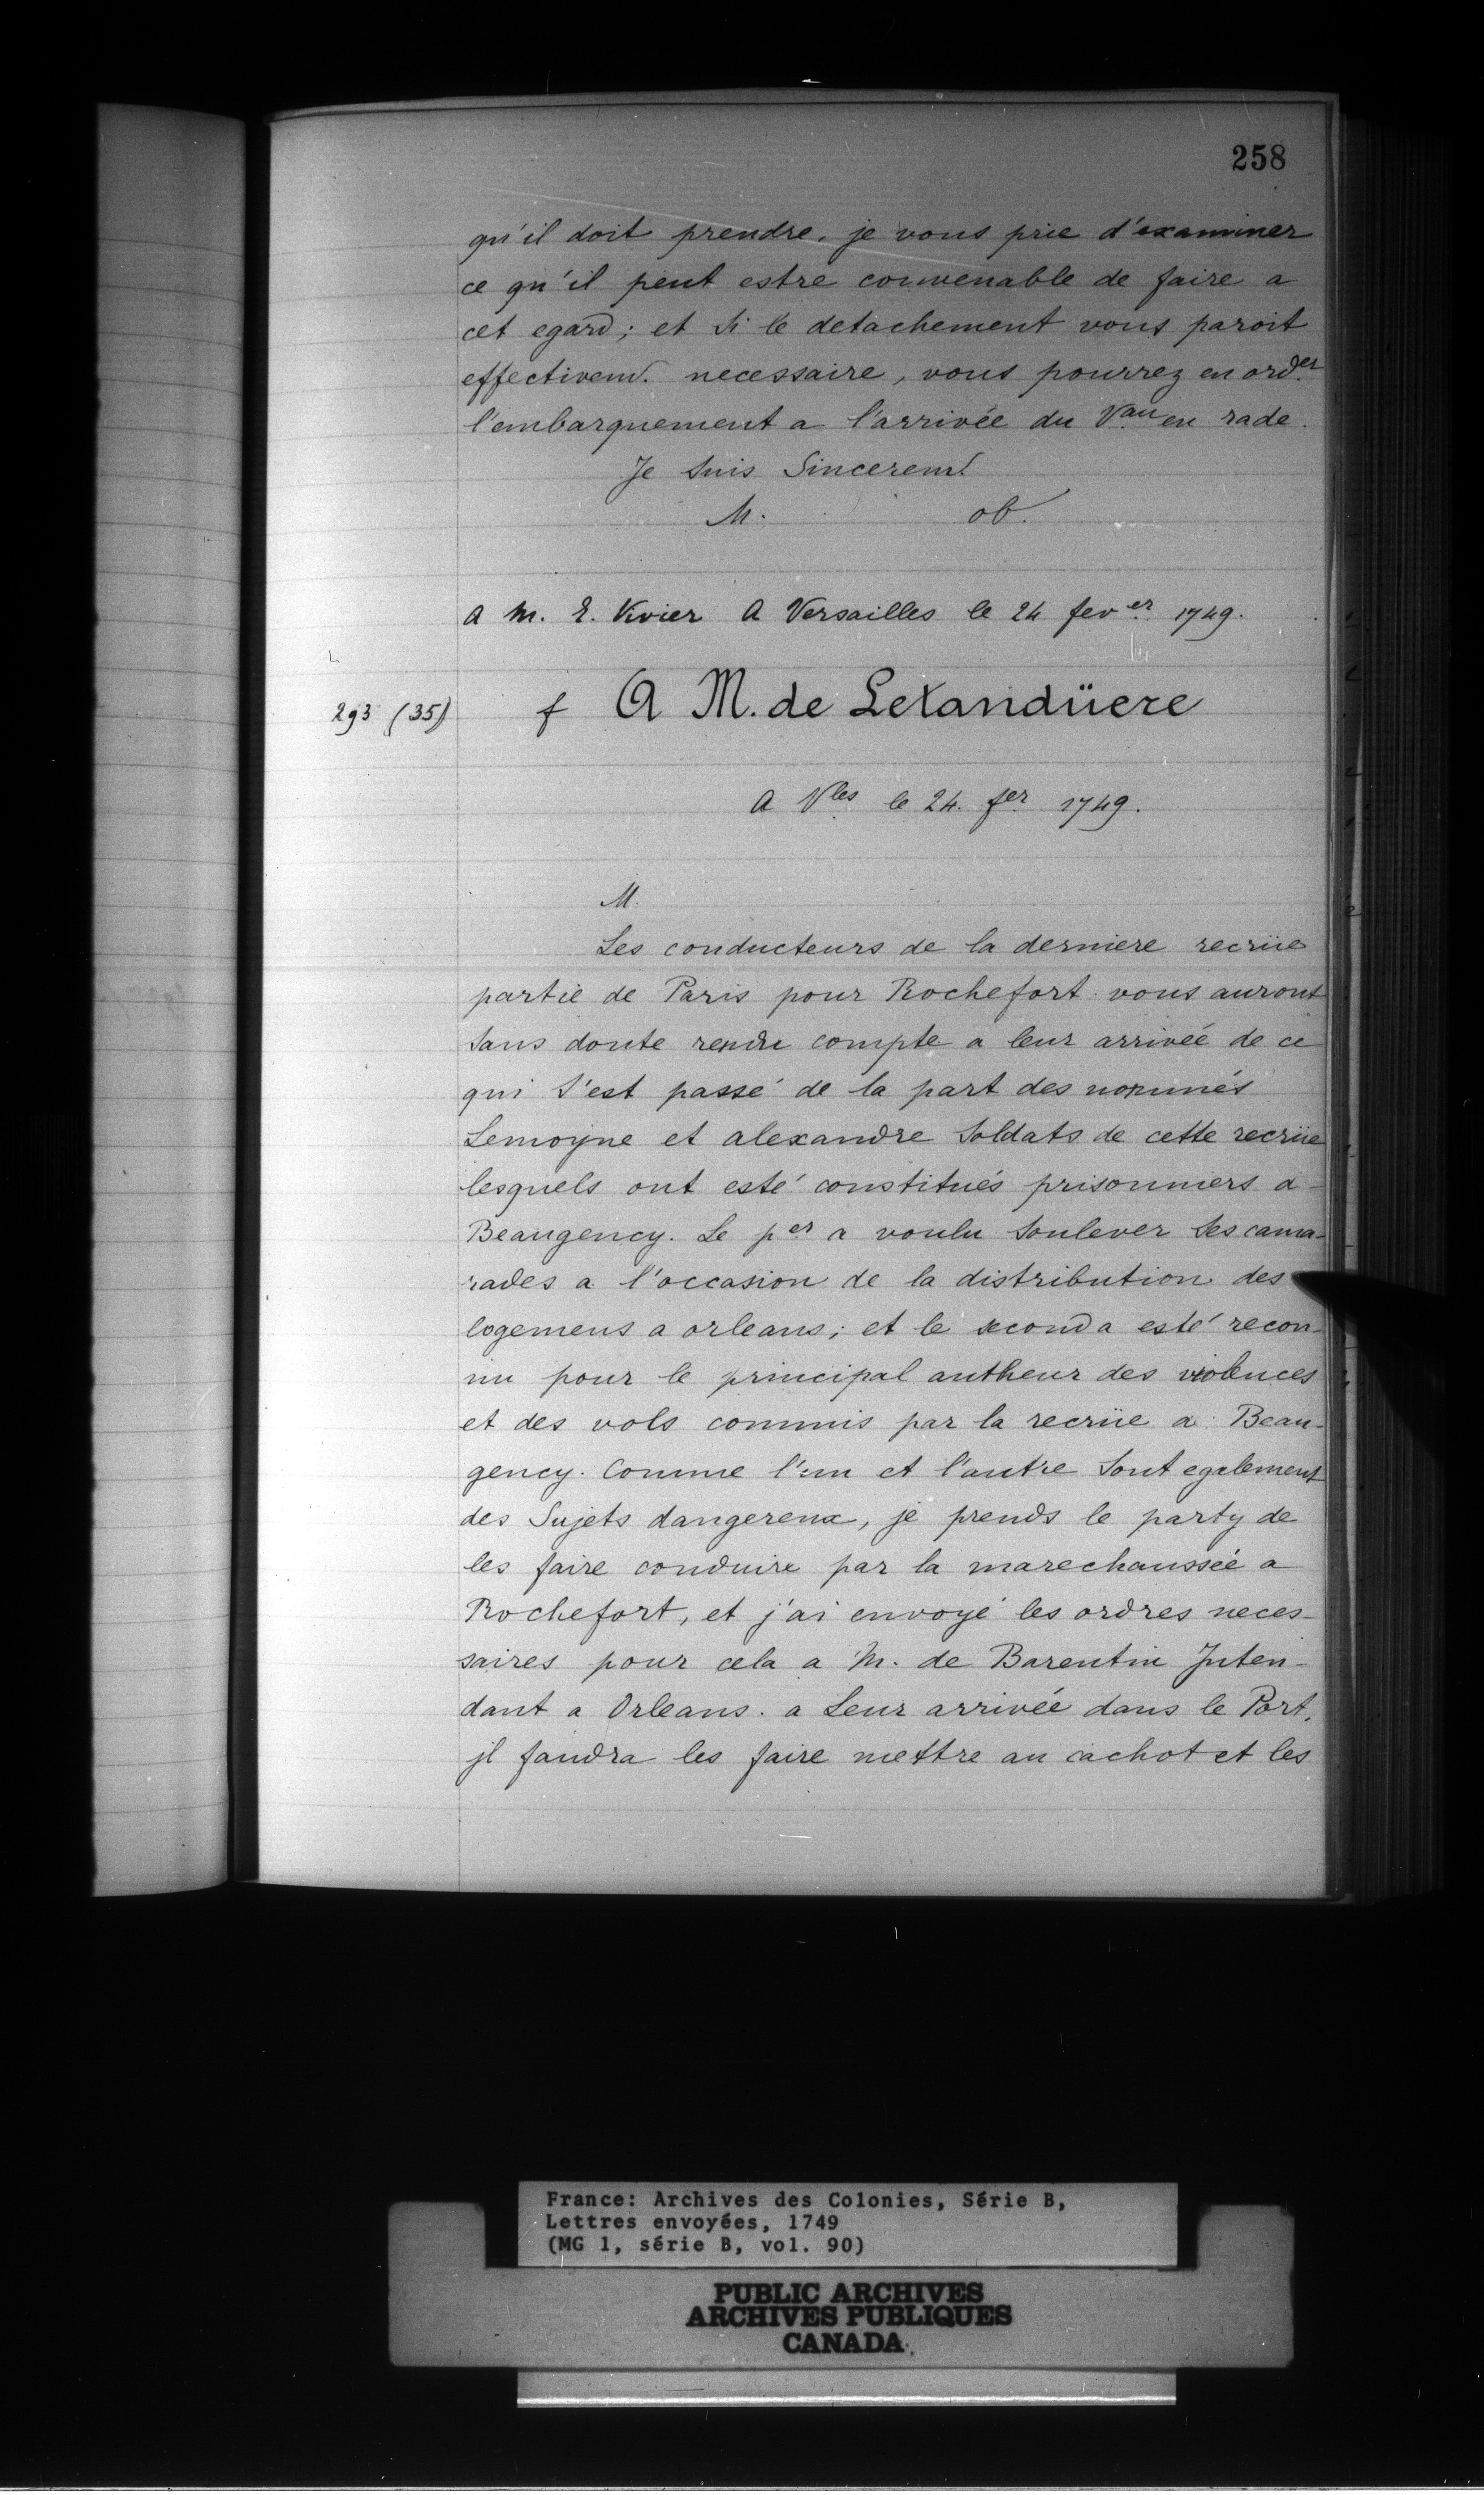 258
qu'il doit prendre, je vous prie d'examiner
ce qu'il peut estre convenable de faire a
cet egard; et Si le detachement vous paroit
effectivemt. necessaire, vous pourrez en order
l'embarquement a l'arrivée du Vau en rade.
Je Suis Sinceremt
M. ob.
A M. E. Vivier A Versailles le 24 fever 1749.
293 (35) f A M. de Letandüere
A Vles le 24. fer 1749.
M.
Les conducteurs de la derniere recrüe
partie de Paris pour Rochefort vous auront
Sans doute rendu compte a leur arrivée de ce
qui S'est passé de la part des nommés
Lemoyne et alexandre Soldats de cette recrüe
lesquels ont esté constitués prisonniers a
Beaugency. Le per a voulu Soulever Ses cama-
rades a l'occasion de la distribution des
logemens a orleans; et le second a esté recon-
nu pour le principal autheur des violences
et des vols commis par la recrüe a Beau-
gency. Comme l'un et l'autre Sont egalement
des Sujets dangereux, je prends le party de
les faire conduire par la marechaussée a
Rochefort, et j'ai envoyé les ordres neces-
saires pour cela a M. de Barentin Inten-
dant a Orleans. a Leur arrivée dans le Port,
jl faudra les faire mettre au cachot et les
France: Archives des Colonies, Série B,
Lettres envoyées, 1749
(MG 1, série B, vol. 90)
PUBLIC ARCHIVES
ARCHIVES PUBLIQUES
CANADA